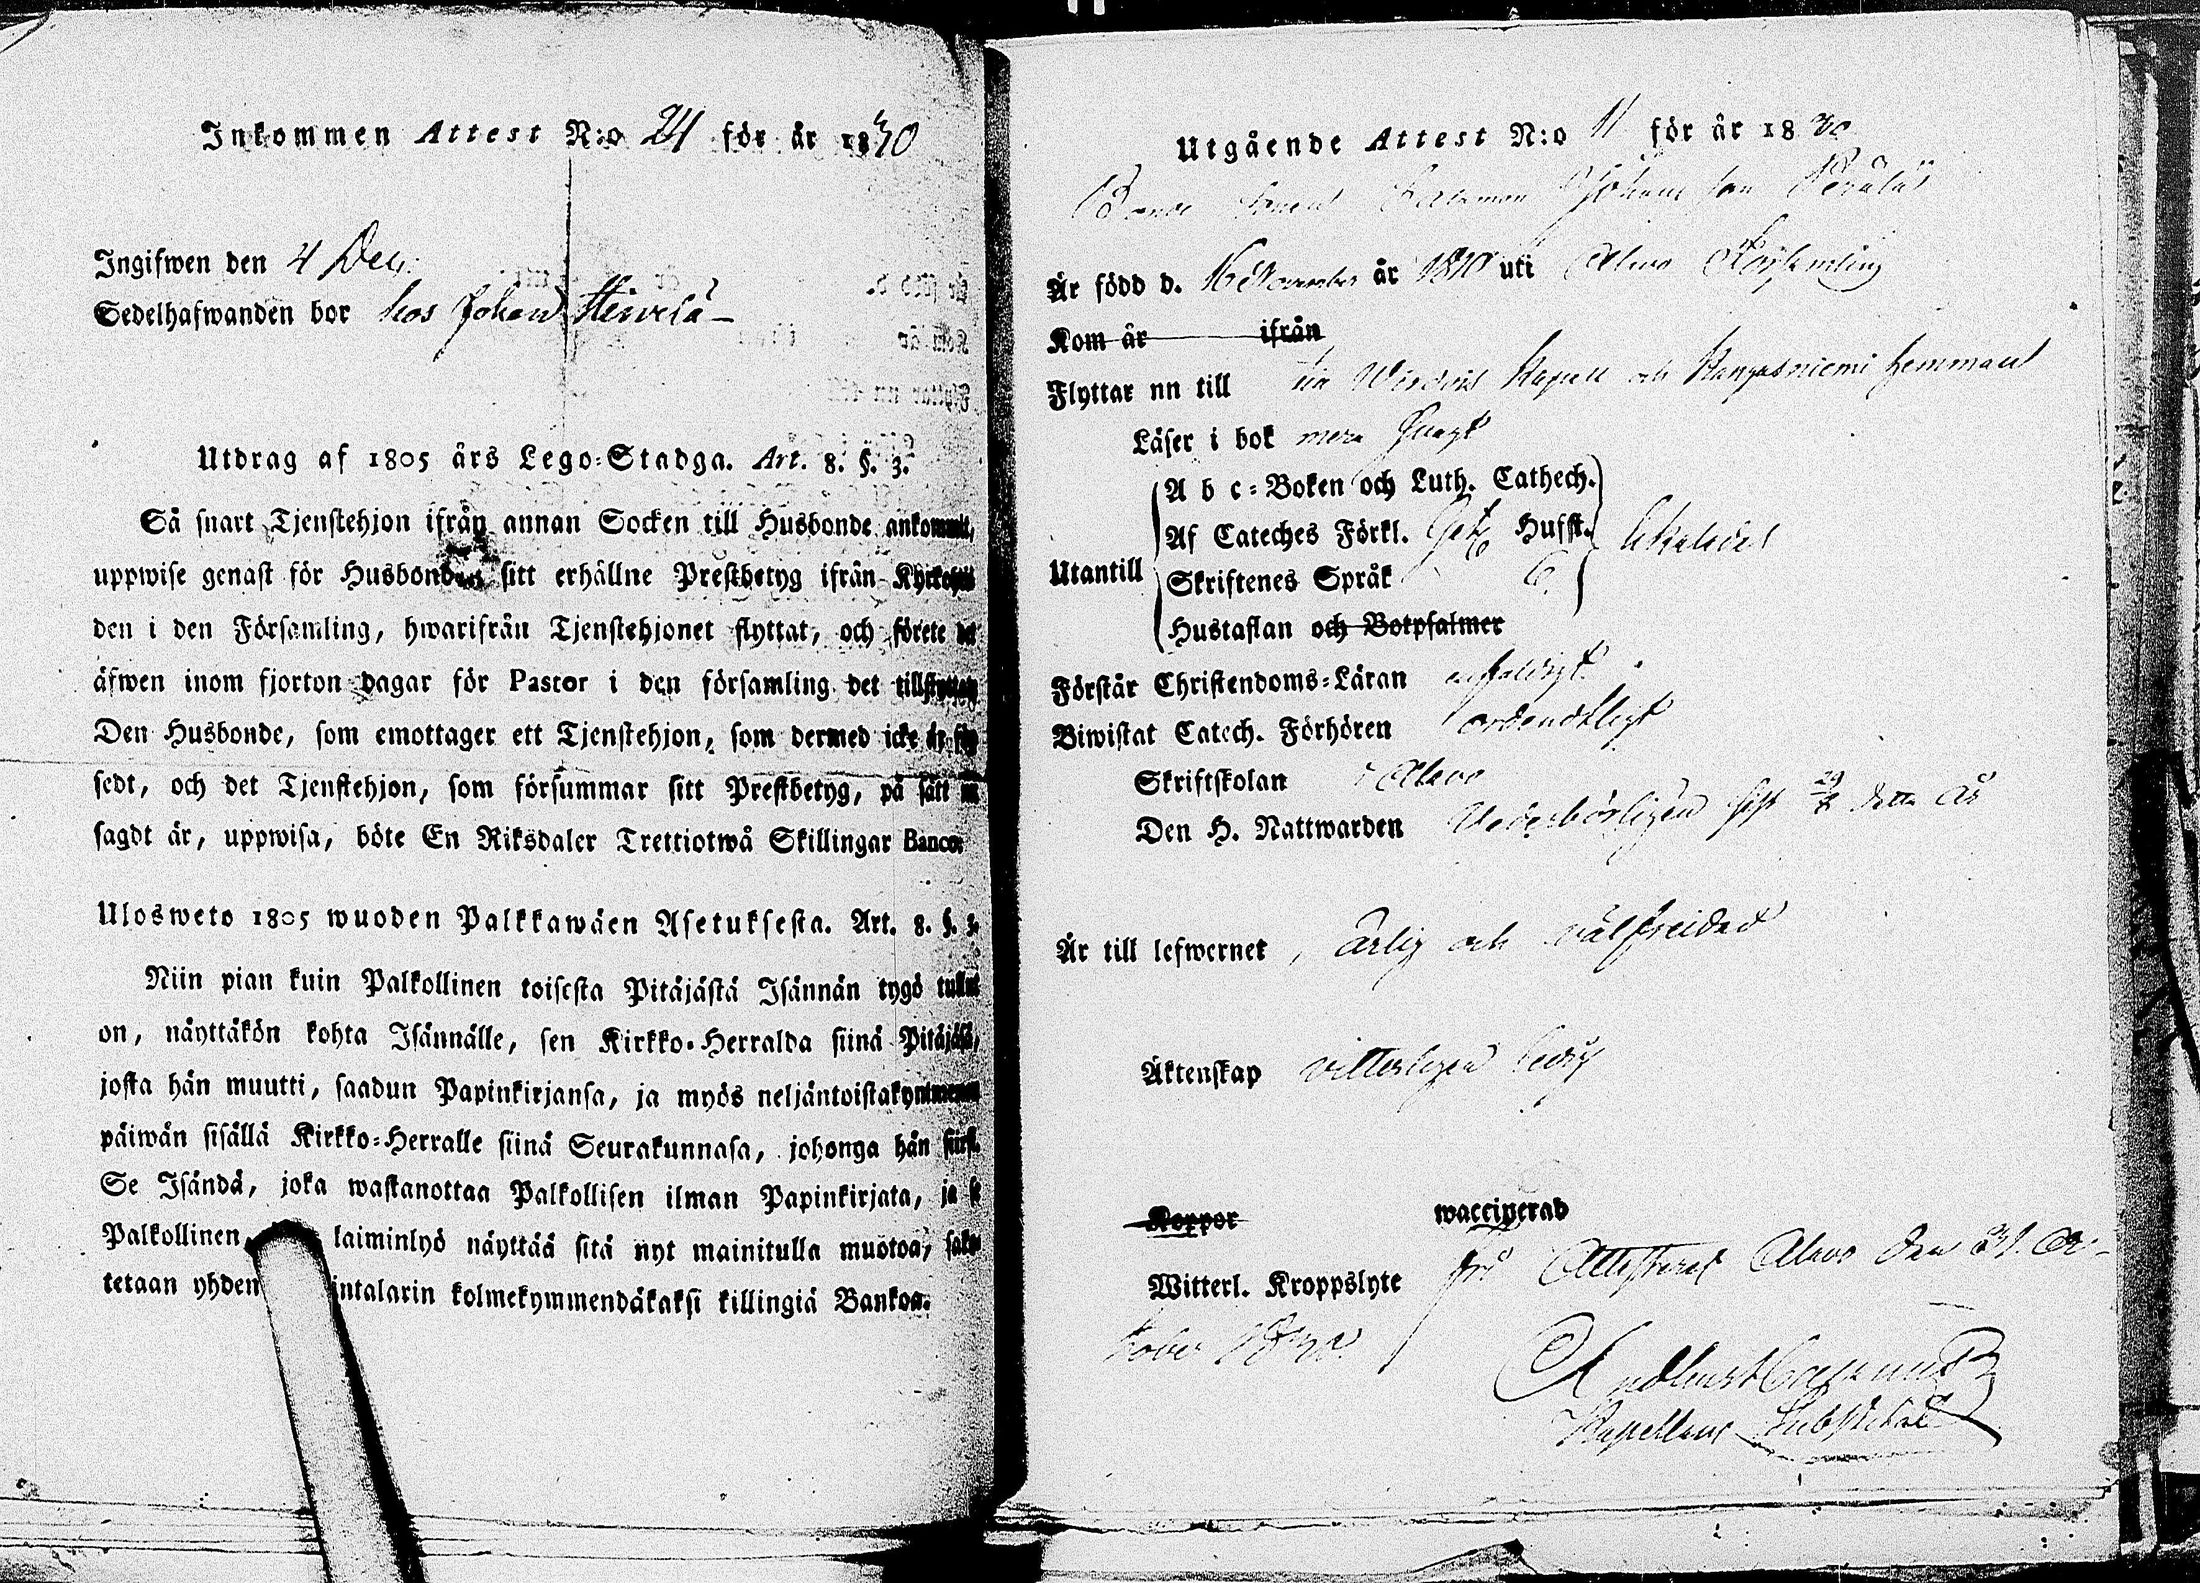 Inkommen Attest N:o 24 för år 1830
Ingifwen den 4 Dec:
Sedelhafwanden bor hos Johan Hirvelä
Utdrag af 1805 års Lego-Stadga. Art. 8. §. 3.
Så snart Tjenstehjon ifrån annan Socken till Husbonde ankommit,
uppwise genast för Husbonden sitt erhållne Prestbetyg ifrån Kyrkoher
den i den Församling, hwarifrån Tjenstehjonet flyttat, och förete det
äfwen inom fjorton dagar för Pastor i den församling det tillflyttat,
Den Husbonde, som emottager ett Tjenstehjon, som dermed icke är för
sedt, och det Tjenstehjon, som försummar sitt Prestbetyg, på sätt nu
sagdt är, uppwisa, böte En Riksdaler Trettiotwå Skillingar Banco.
Ulosweto 1805 wuoden Palkkawäen Asetuksesta. Art. 8. §. 3.
Niin pian kuin Palkollinen toisesta Pitäjästä Isännän tygö tullut
on, näyttäkön kohta Isännälle, sen Kirkko-Herralda siinä Pitäjäsä,
josta hän muutti, saadun Papinkirjansa, ja myös neljäntoistakymmenen
päiwän sisällä Kirkko-Herralle siinä Seurakunnasa, johonga hän siirsi.
Se Isändä, joka wastanottaa Palkollisen ilman Papinkirjata, ja se
Palkollinen laiminlyö näyttää sitä nyt mainitulla muotoa, sako
tetaan yhden intalarin kolmekymmendäkaksi killingiä Bankoa.
Utgående Attest N:o 11 för år 1830
Bonde Sonen Salomon Johans son Perälä
Är född d. 16 November år 1810 uti Alavo Församling
Kom år ifrån
Flyttar nu till Wirdois Kapell och Kangasniemi hemman
Läser i bok mera svagt
Utantill
A b c-Boken och Luth. Cathech.
Af Cateches Förkl. Hufst.
Skriftenes Språk
Hustaflan och Botpsalmer
Förstår Christendoms-Läran enfaldigt
Biwistat Catech. Förhören ordendtligt
Skriftskolan i Alavo
Den H. Nattwarden Vederbörligen sist detta år
Är till lefwernet, ärlig och välfreidad
Äktenskap vitterligen ledig
Koppor waccinerad
Witterl. Kroppslyte fri Attesterar Alavo den 31. Oc-
tober 1830.
Kapellans Substitut